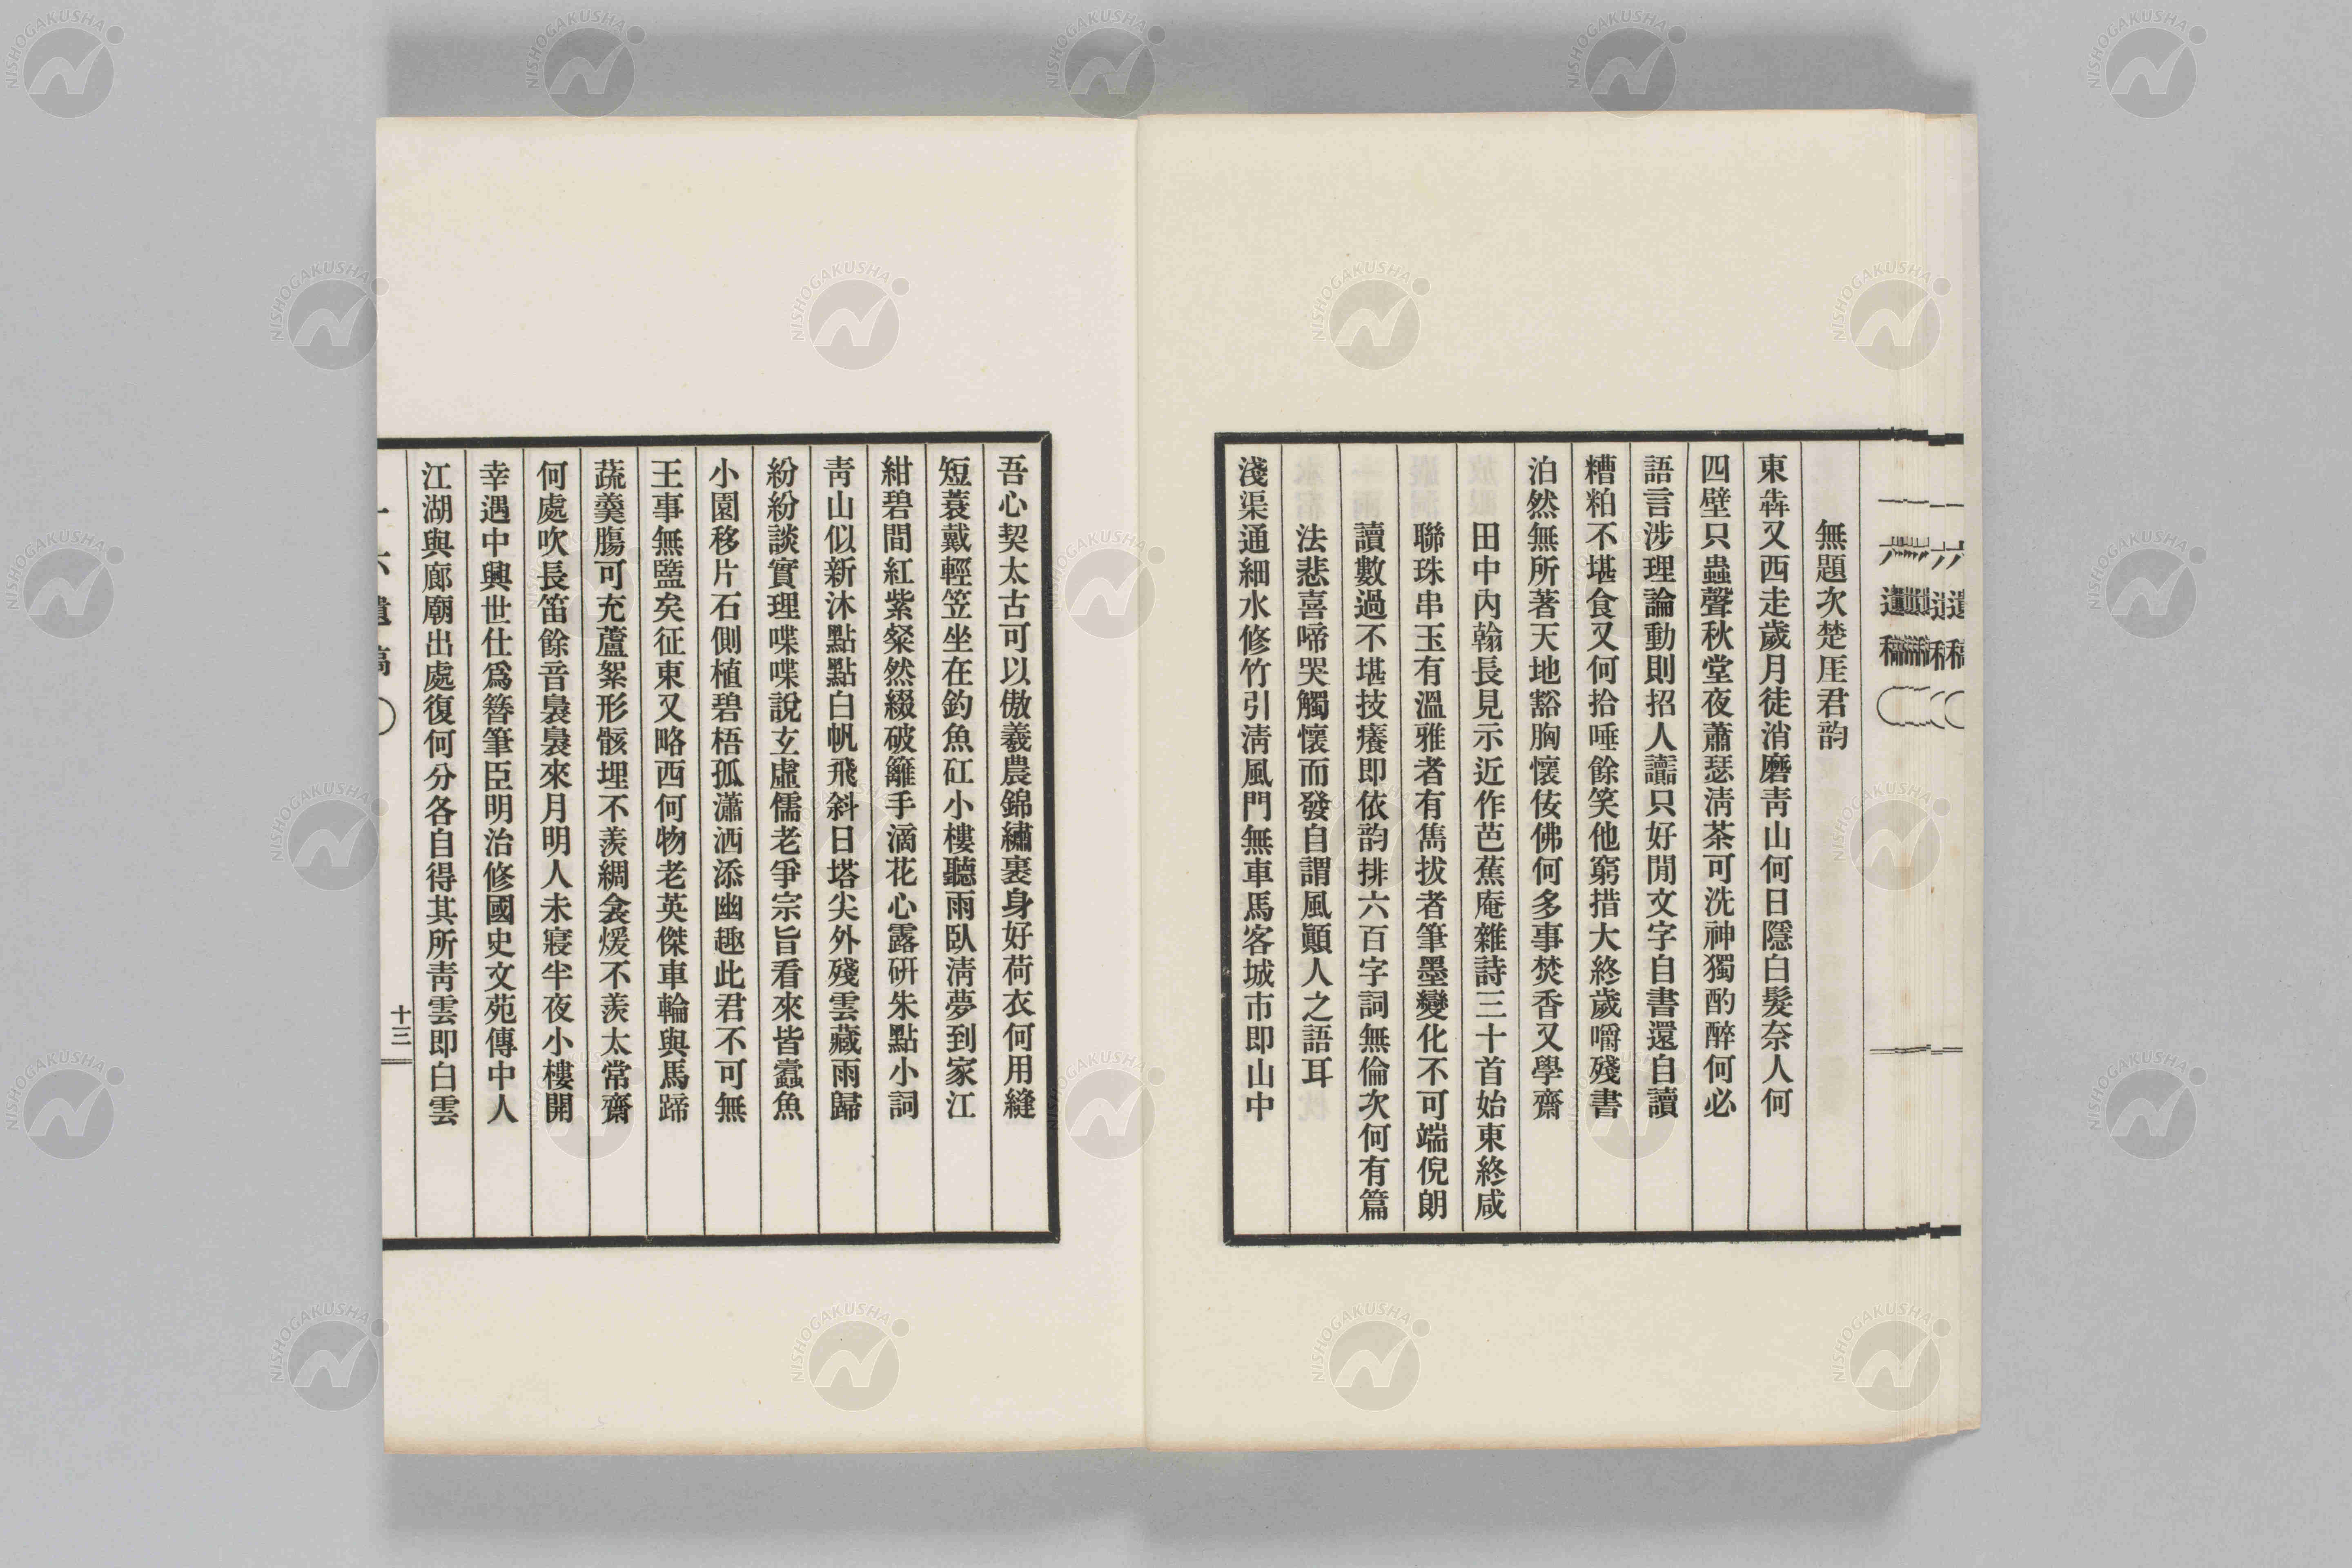 無題次楚厓君韵
東犇又西走歲月徒消磨靑山何日隱白髮奈人何
四壁只蟲聲秋堂夜蕭瑟淸茶可洗神獨酌醉何必
語言涉理論動則招人讟只好閒文字自書還自讀
糟粕不堪食又何拾唾餘笑他窮措大終歲嚼殘書
泊然無所著天地豁胸懷佞佛何多事焚香又學齋
田中內翰長見示近作芭蕉庵雜詩三十首始東終咸
聯珠串玉有溫雅者有雋拔者筆墨變化不可端倪朗
讀數過不堪技癢即依韵排六百字詞無倫次何有篇
法悲喜啼哭觸懷而發自謂風顚人之語耳
淺渠通細水修竹引淸風門無車馬客城市即山中
吾心契太古可以傲羲農錦繡裹身好荷衣何用縫
短蓑戴輕笠坐在釣魚矼小樓聽雨臥淸夢到家江
紺碧間紅紫粲然綴破籬手滴花心露硏朱點小詞
靑山似新沐點點白帆飛斜日塔尖外殘雲藏雨歸
紛紛談實理喋喋說玄虛儒老爭宗旨看來皆蠹魚
小園移片石側植碧梧孤瀟洒添幽趣此君不可無
王事無盬矣征東又略西何物老英傑車輪與馬蹄
蔬羹膓可充蘆絮形骸埋不羨綢衾煖不羨太常齋
何處吹長笛餘音裊裊來月明人未寢半夜小樓開
幸遇中興世仕爲簪筆臣明治修國史文苑傳中人
江湖與廊廟出處復何分各自得其所靑雲即白雲
一六遺稿
十三
NISHOGAKUSHA